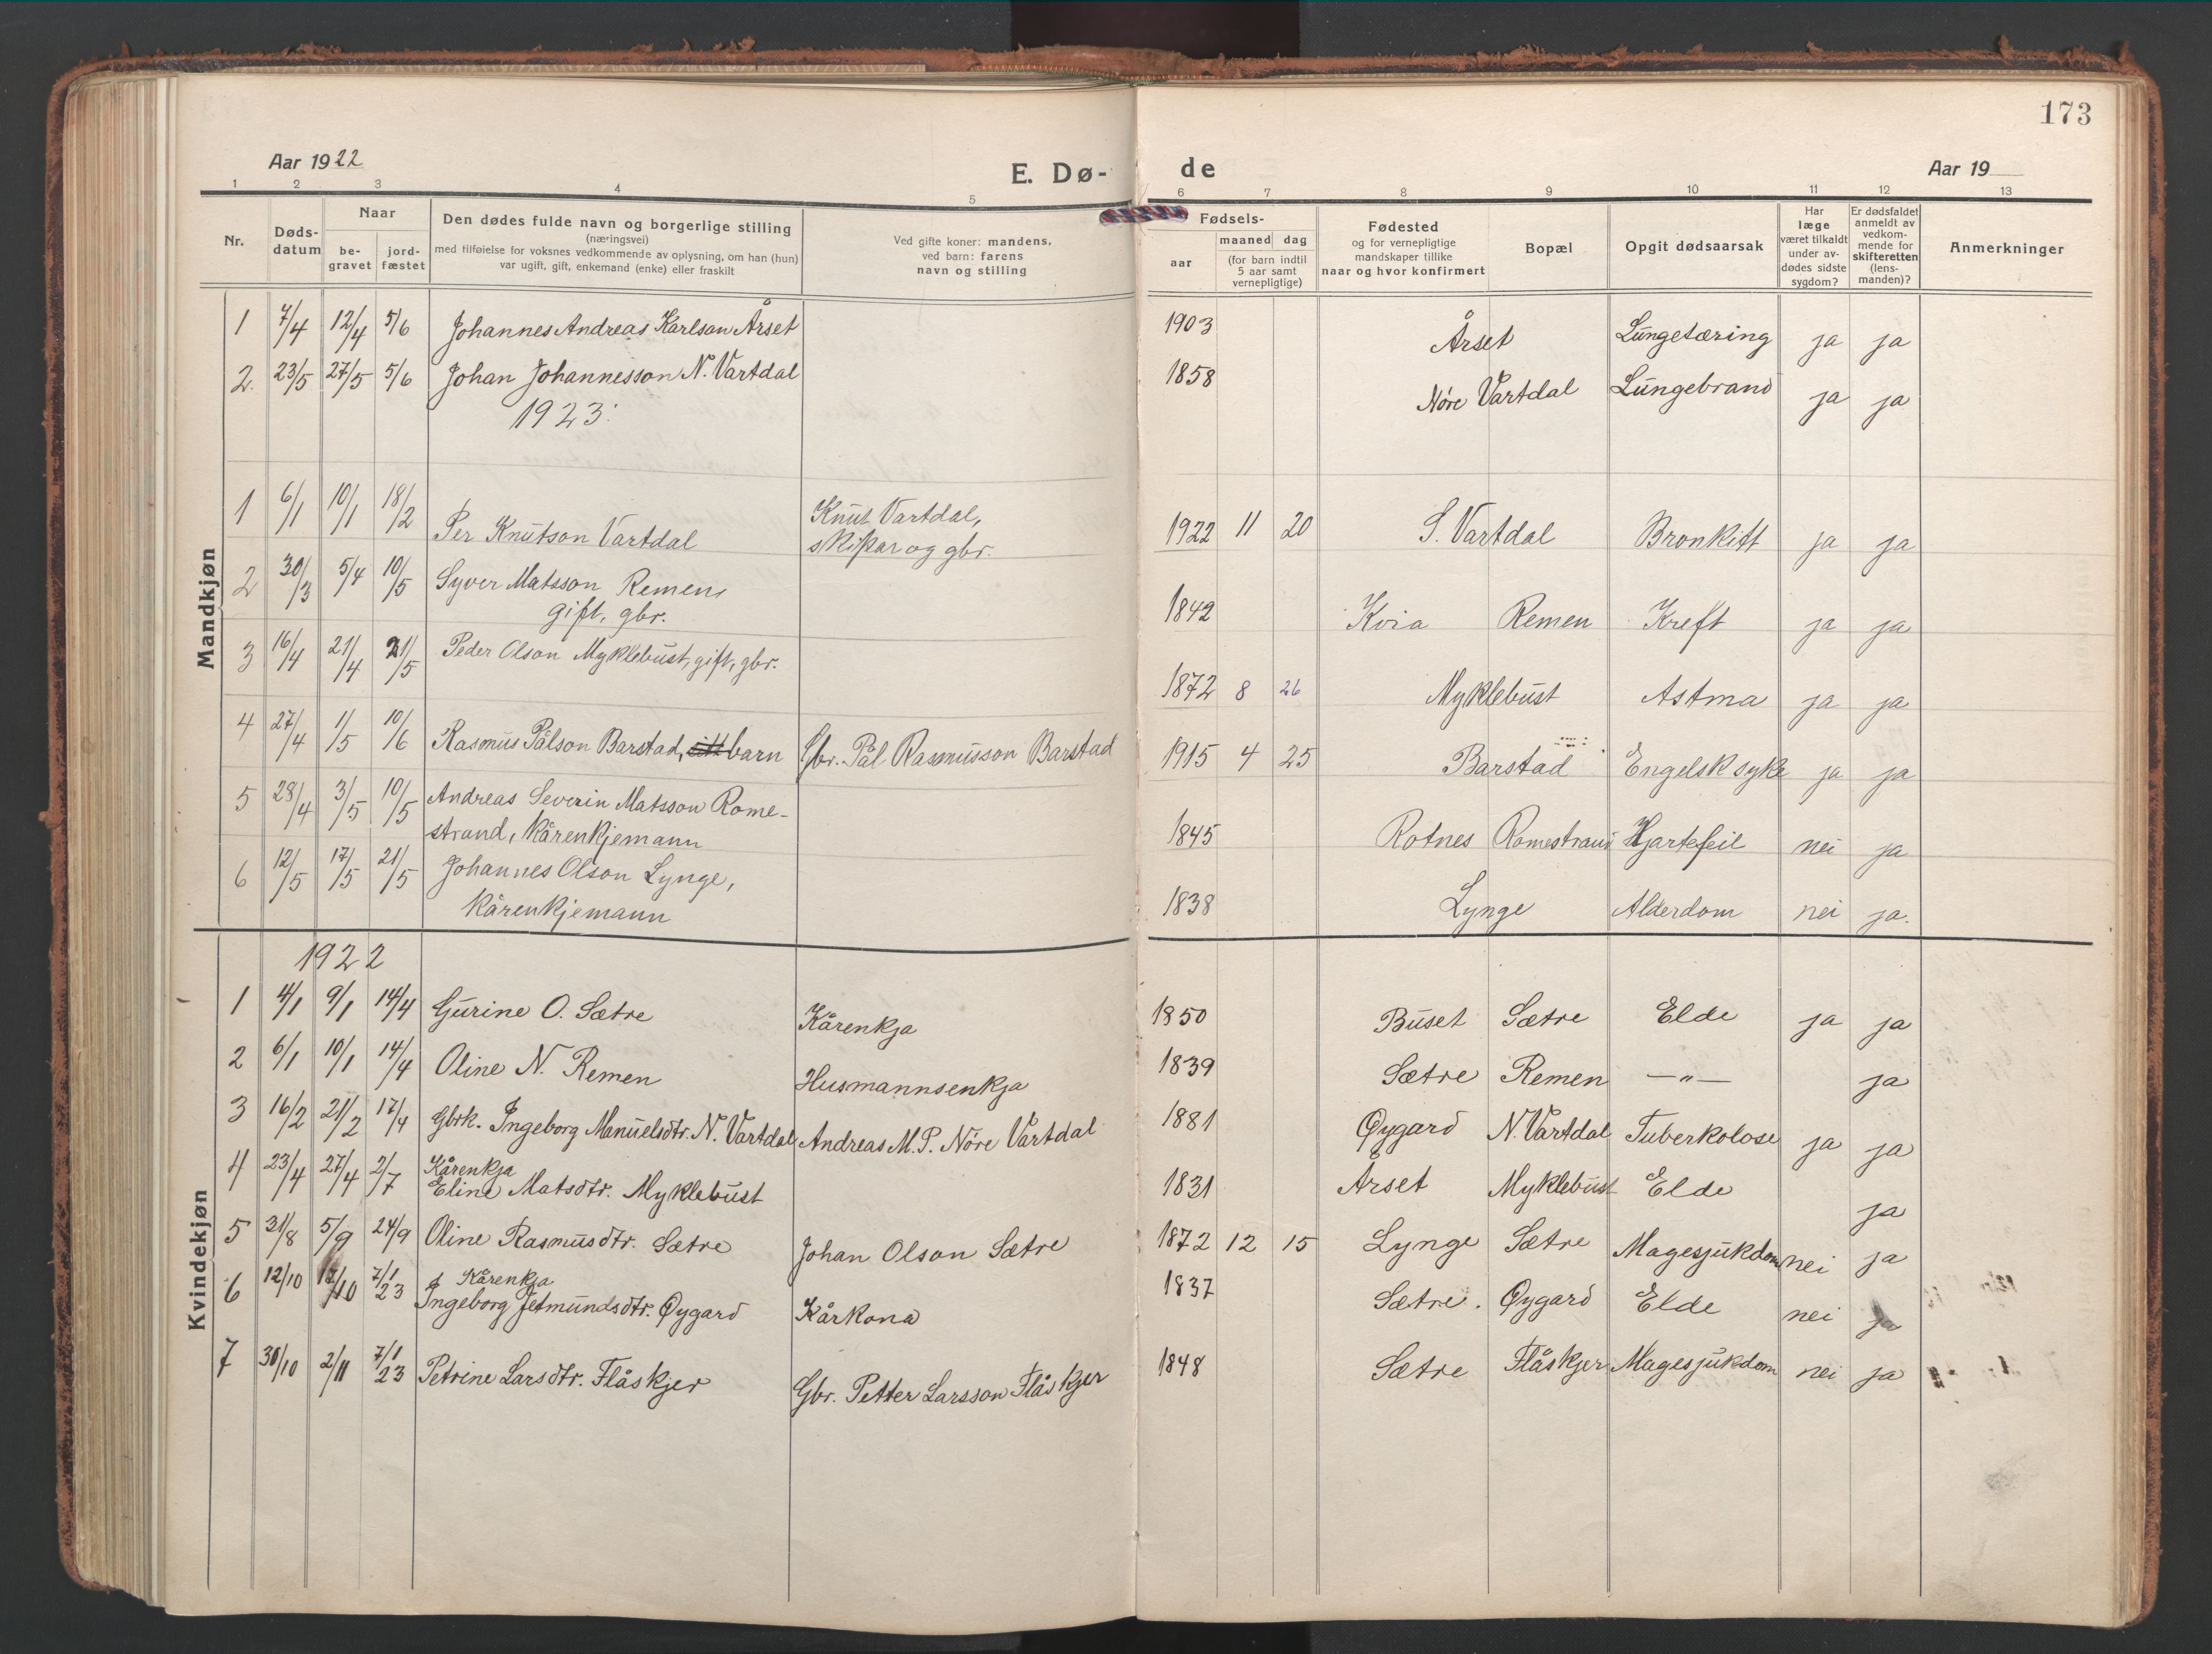 173
Aar 1922 E. Dø-de Aar 19
1 2 3 4 5 6 7 8 9 10 11 12 13
Nr.
Døds-datum
Naar
be-gravet
jord-fæstet
Den dødes fulde navn og borgerlige stilling
(næringsvei)
med tilføielse for voksnes vedkommende av oplysning, om han (hun)
var ugift, gift, enkemand (enke) eller fraskilt
Ved gifte koner: mandens,
ved barn: farens
navn og stilling
Fødsels-
aar
maaned dag
(for barn indtil
5 aar samt
vernepligtige)
Fødested
og for vernepligtige
mandskaper tillike
naar og hvor konfirmert
Bopæl
Opgit dødsaarsak
Har
læge
været tilkaldt
under av-
dødes sidste
sygdom?
Er dødsfaldet
anmeldt av
vedkom-
mende for
skifteretten
(lens-
manden)?
Anmerkninger
Mandkjøn
1 7/4 12/4 5/6 Johannes Andreas Karlson Årset 1903 Årset Lungetæring ja ja
2. 23/5 27/5 5/6 Johan Johannesson N. Vartdal 1858 Nøre Vartdal Lungebrand ja ja
1923:
1 6/1 10/1 18/2 Per Knutson Vartdal Knut Vartdal, 1922 11 20 S. Vartdal Bronkitt ja ja
skipar og gbr.
2 30/3 5/4 10/5 Syver Matsson Remen, 1842 Kvia Remen Kreft ja ja
gift, gbr.
3 16/4 21/4 21/5 Peder Olson Myklebust, gift, gbr. 1872 8 26 Myklebust Astma ja ja
4 27/4 1/5 10/6 Rasmus Pålson Barstad, barn Gbr. Pål Rasmusson Barstad 1915 4 25 Barstad Engelsk syke ja ja
5 28/4 3/5 10/5 Andreas Severin Matsson Rome- 1845 Rotnes Romestrand Hjartefeil nei ja
strand, kårenkjemann
6 12/5 17/5 21/5 Johannes Olson Lynge, 1838 Lynge Alderdom nei ja.
kårenkjemann
Kvindekjøn
1922
1 4/1 9/1 14/4 Gurine O. Sætre Kårenkja 1850 Buset Sætre Elde ja ja
2 6/1 10/1 14/4 Oline N. Remen Husmannsenkja 1839 Sætre Remen —"— ja
3 16/2 21/2 17/4 Gbrk. Ingeborg Manuelsdtr. N. Vartdal Andreas M. P. Nøre Vartdal 1881 Øygard N. Vartdal Tuberkolose ja ja
4 23/4 27/4 2/7 Kårenkja
Eline Matsdtr. Myklebust 1831 Årset Myklebust Elde ja
5 31/8 5/9 24/9 Oline Rasmusdtr. Sætre Johan Olson Sætre 1872 12 15 Lynge Sætre Magesjukdom nei ja
6 12/10 17/10 7/1 23 Kårenkja
Ingeborg Jetmundsdtr. Øygard Kårkona 1837 Sætre. Øygard Elde nei ja
7 30/10 2/11 7/1 23 Petrine Larsdtr. Flåskjer Gbr. Petter Larsson Flåskjer 1848 Sætre Flåskjer Magesjukdom nei ja